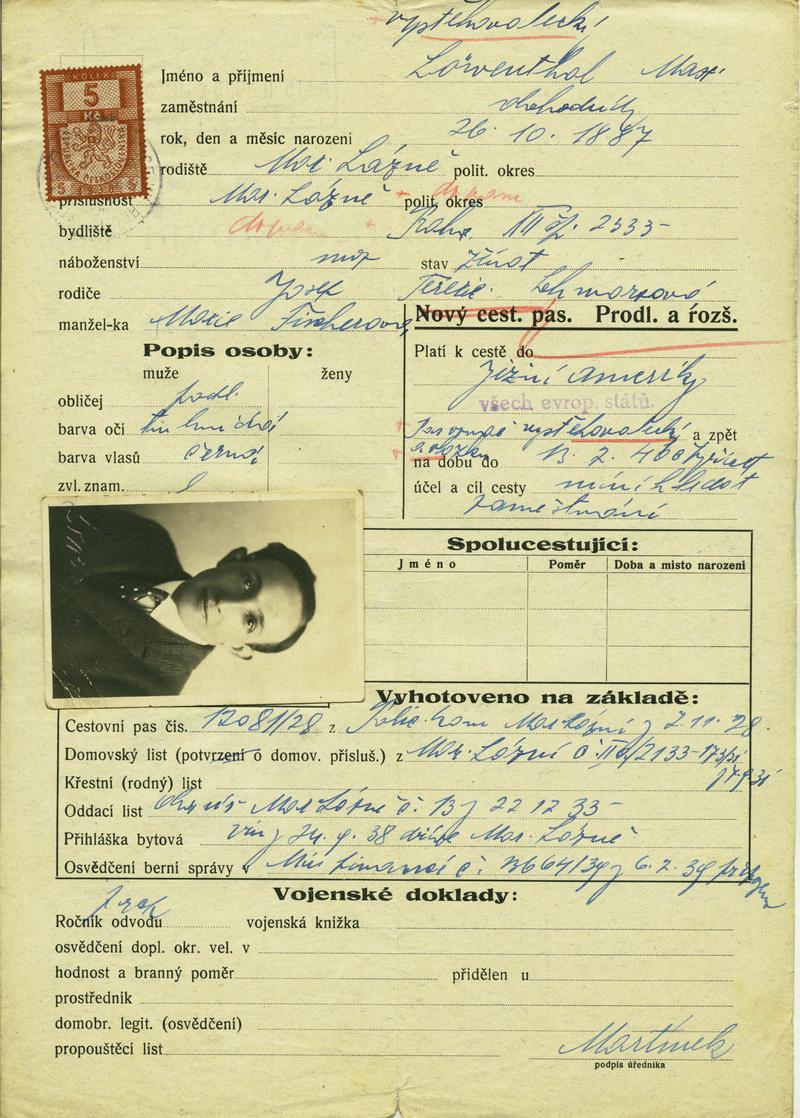 vystěhovalecký
KOLEK
5
Kč
Jméno a příjmení Löwenthal Max
zaměstnání obchodník
rok, den a měsíc narození 26. 10. 1887
rodiště Mar. Lázně polit. okres
příslušnost Mar. Lázně polit. okres
bydliště Praha XII
náboženství stav ženat
rodiče Josef Terezie
manžel-ka Marie Fischerová
Nový cest. pas. Prodl. a rozš.
Popis osoby:
Platí k cestě do
muže ženy
Jižní Ameriky
obličej podl.
všech evrop. států.
barva očí
vystěhovalecký a zpět
barva vlasů černá
na dobu do 13. 2.
zvl. znam.
účel a cíl cesty míní hledat
zaměstnání
Spolucestující:
Jméno Poměr Doba a místo narození
Vyhotoveno na základě:
Cestovní pas čís. 12081/28 z 2. 11. 28.
Domovský list (potvrzení o domov. přísluš.) z Mar. Lázní
Křestní (rodný) list
Oddací list Mar. Lázně č. 13 z 22 12 33
Přihláška bytová 24. 9. 38 dříve Mar. Lázně
Osvědčení berní správy v Min. financí č. 3664/39 z 6. 2. 39
Vojenské doklady:
Ročník odvodu vojenská knížka
osvědčení dopl. okr. vel. v
hodnost a branný poměr přidělen u
prostředník
domobr. legit. (osvědčení)
propouštěcí list
Martínek
podpis úředníka